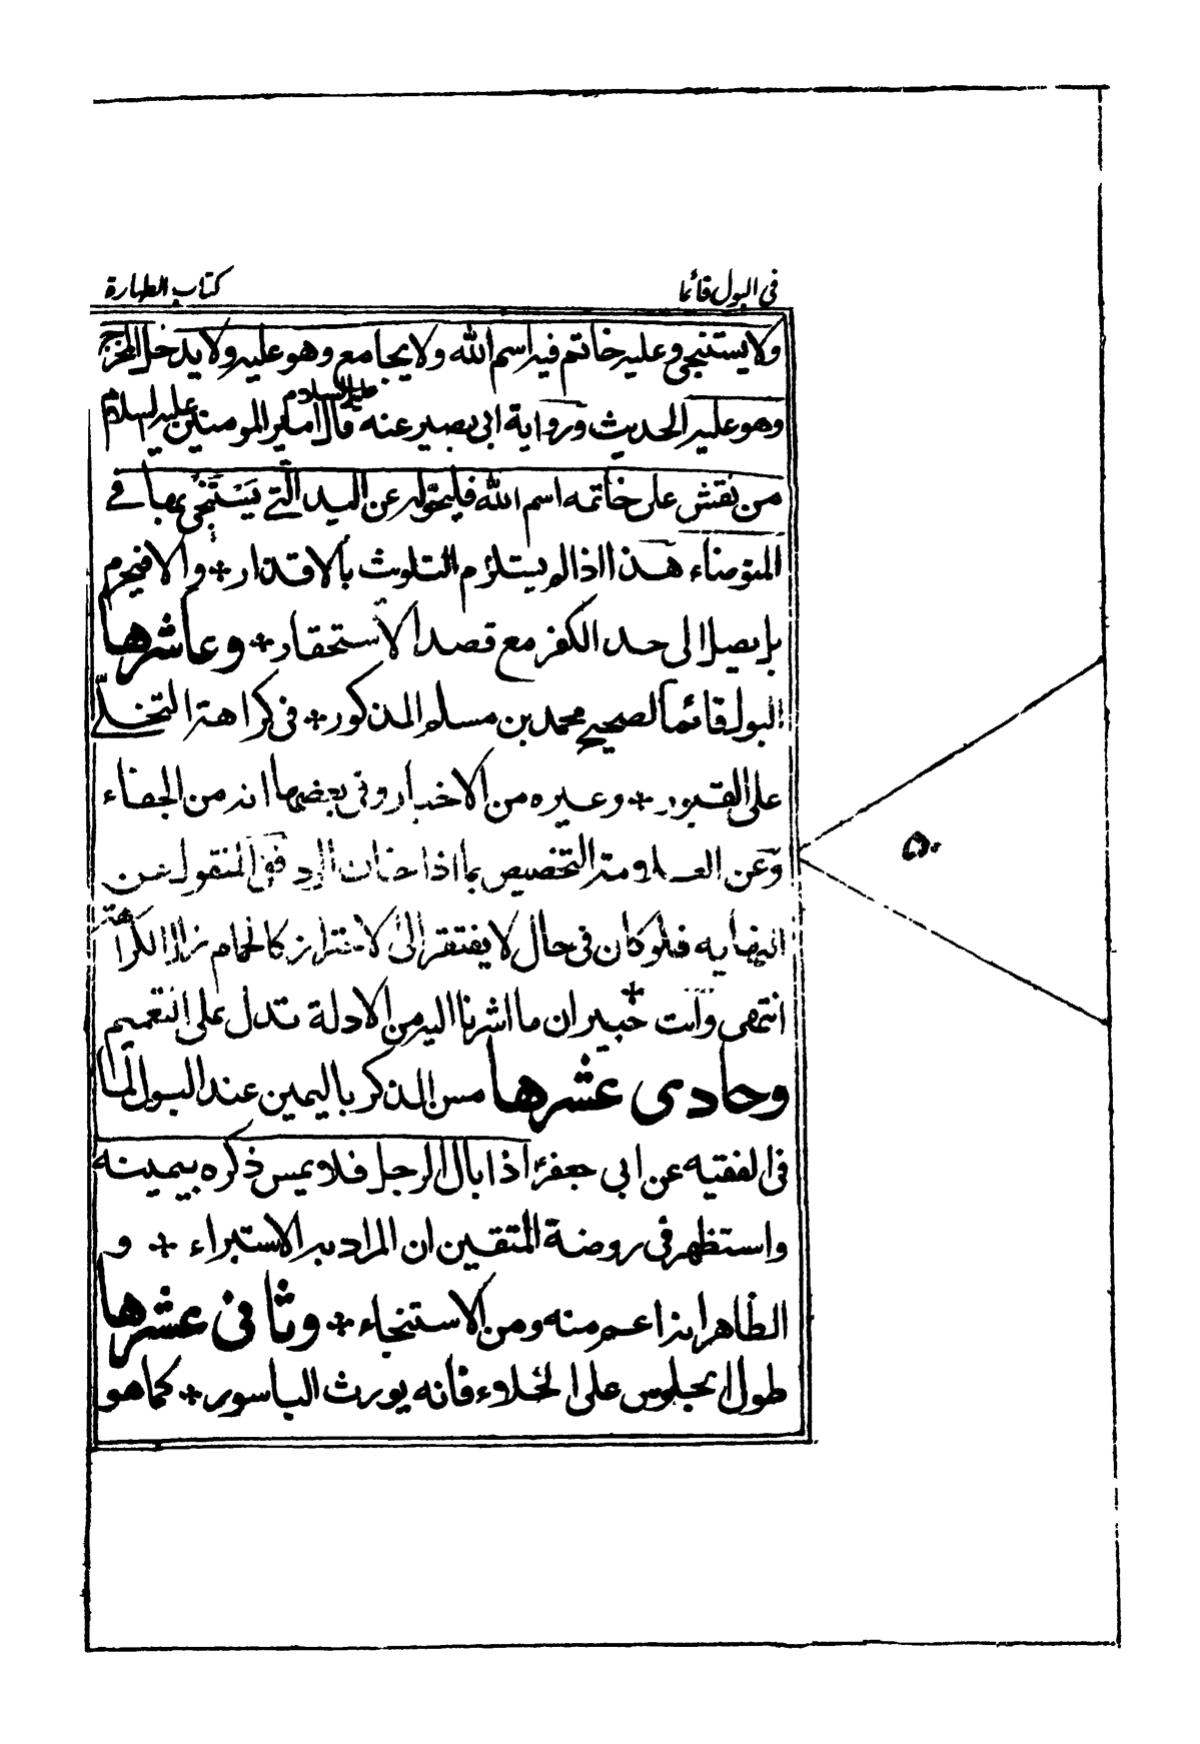 في البول قائما
كتاب الطهارة
ولا يستنجي وعليه خاتم فيه اسم الله ولا يجامع وهو عليه ولا يدخل المخرج
وهو عليه الحديث ورواية ابي بصير عنه عليه السلام قال امير المومنين عليه السلام
من نقش على خاتمه اسم الله فليحوله عن اليد التي يستنجي بها في
المتوضاء هذا اذا لم يستلزم التلوث بالاقذار + والا فيحرم
بل يصل الى حد الكفر مع قصد الاستحقار + وعاشرها
البول قائما لصحيح محمد بن مسلم المذكور + في كراهة التخلي
على القبور + وغيره من الاخبار وفي بعضها انه من الجفاء
وعن العلامة التخصيص بما اذا خاف الرد ففي المنقول عن
النهاية فلو كان في حال لا يفتقر الى كالحمام زال الكراهة
انتهى وانت خبير + ان ما اشرنا اليه من الادلة تدل على التعميم
وحادي عشرها مس الذكر باليمين عند البول لما
في الفقيه عن ابي جعفر اذا بال الرجل فلا يمس ذكره بيمينه
واستظهر في روضة المتقين ان المراد به الاستبراء + و
الظاهر انه اعم منه ومن الاستنجاء + وثاني عشرها
طول الجلوس على الخلاء فانه يورث الباسور + كما هو
٥٠